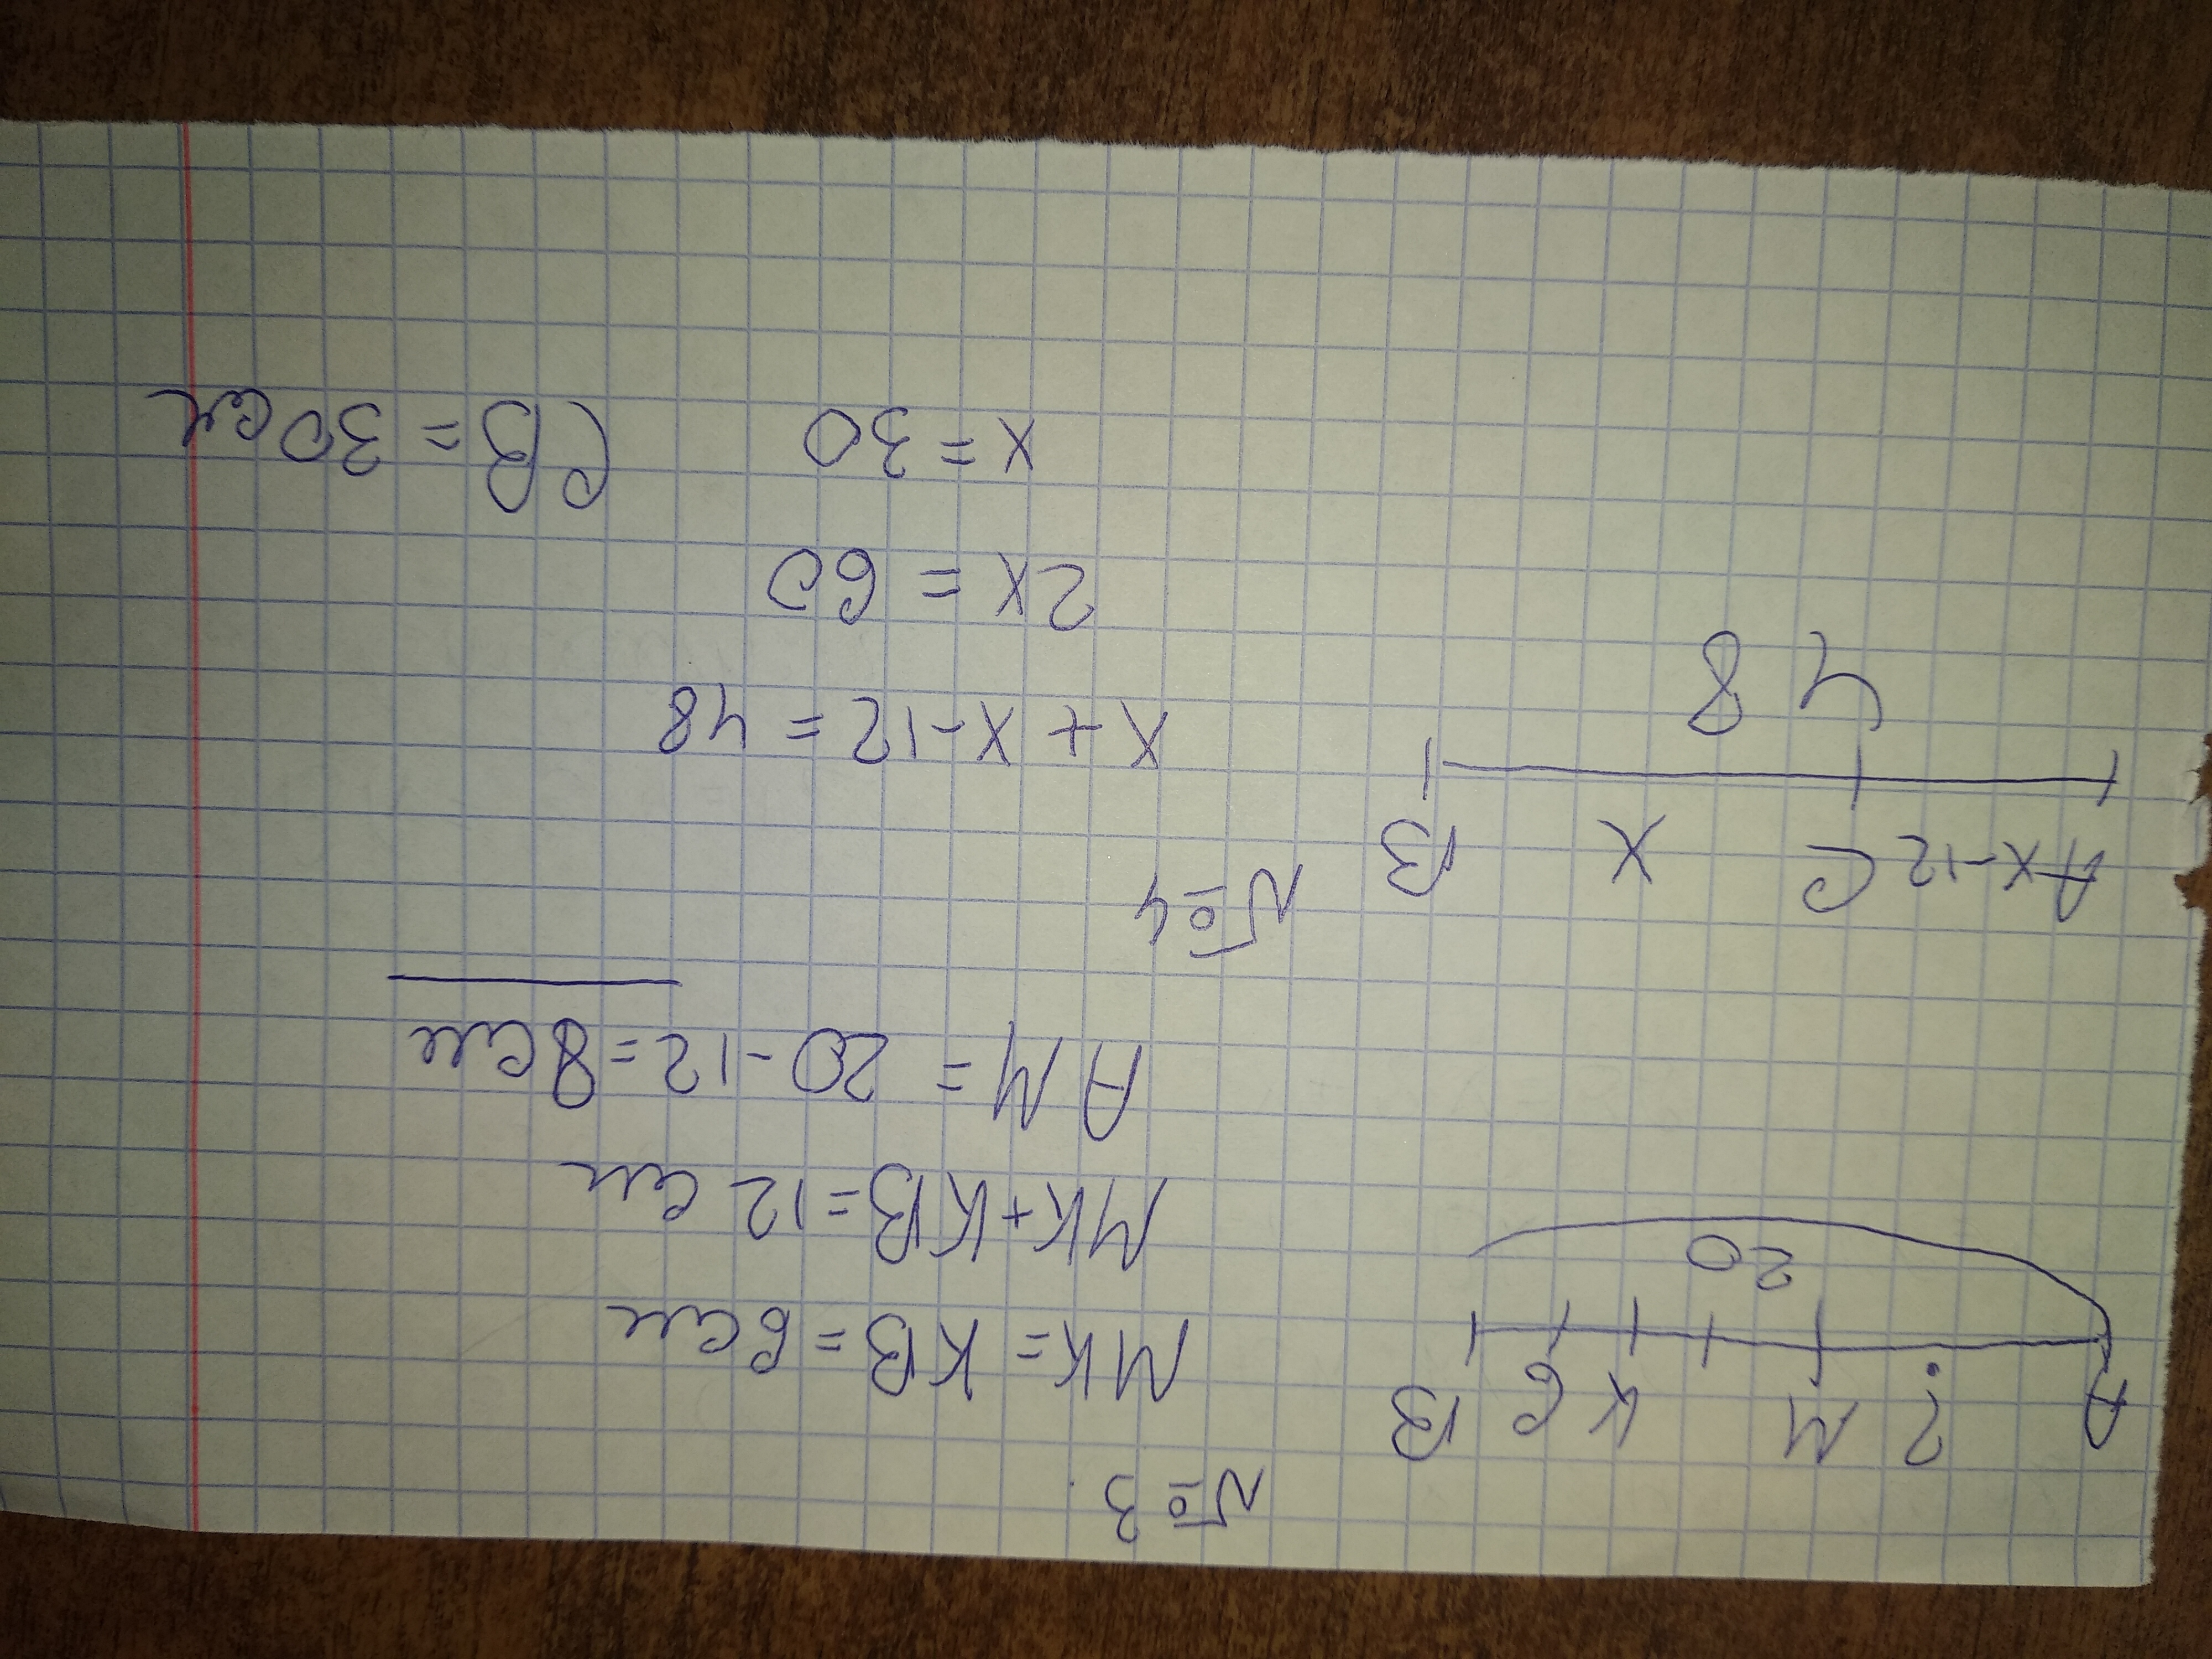 № 3
A ? M K 6 B
20
MK = KB = 6см
MK+KB=12 см
AM = 20-12=8см
№4
A x-12 C x B
48
x + x-12 = 48
2x = 60
x = 30 CB = 30см